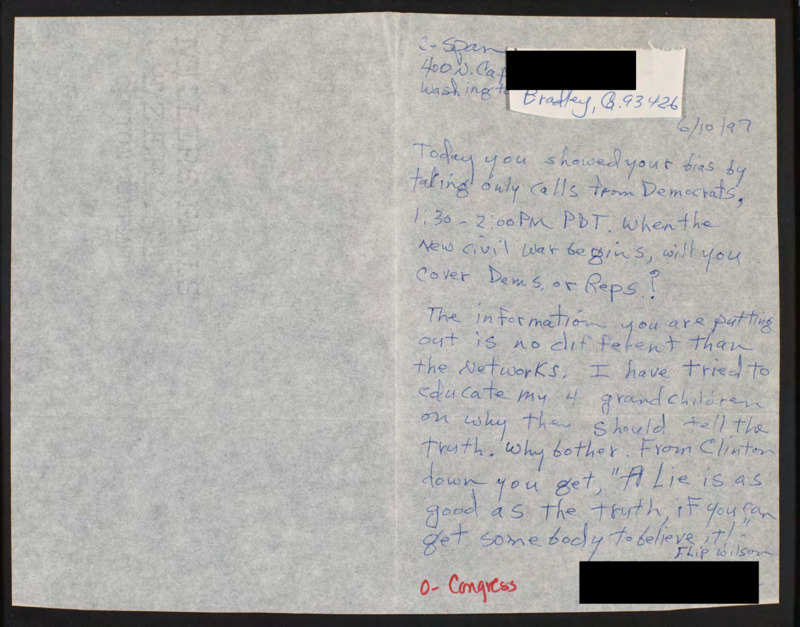 C-Span
400 N. Cap
Washingt
Bradley, Ca. 93426
6/10/97
Today you showed your bias by
taking only calls from Democrats,
1:30 - 2:00 PM PDT. When the
New civil war begins, will you
cover Dems. or Reps.?
The information you are putting
out is no different than
the Networks. I have tried to
educate my 4 grandchildren
on why they should tell the
truth. Why bother. From Clinton
down you get, "A Lie is as
good as the truth, if you can
get somebody to believe it!"
Flip Wilson
O- Congress